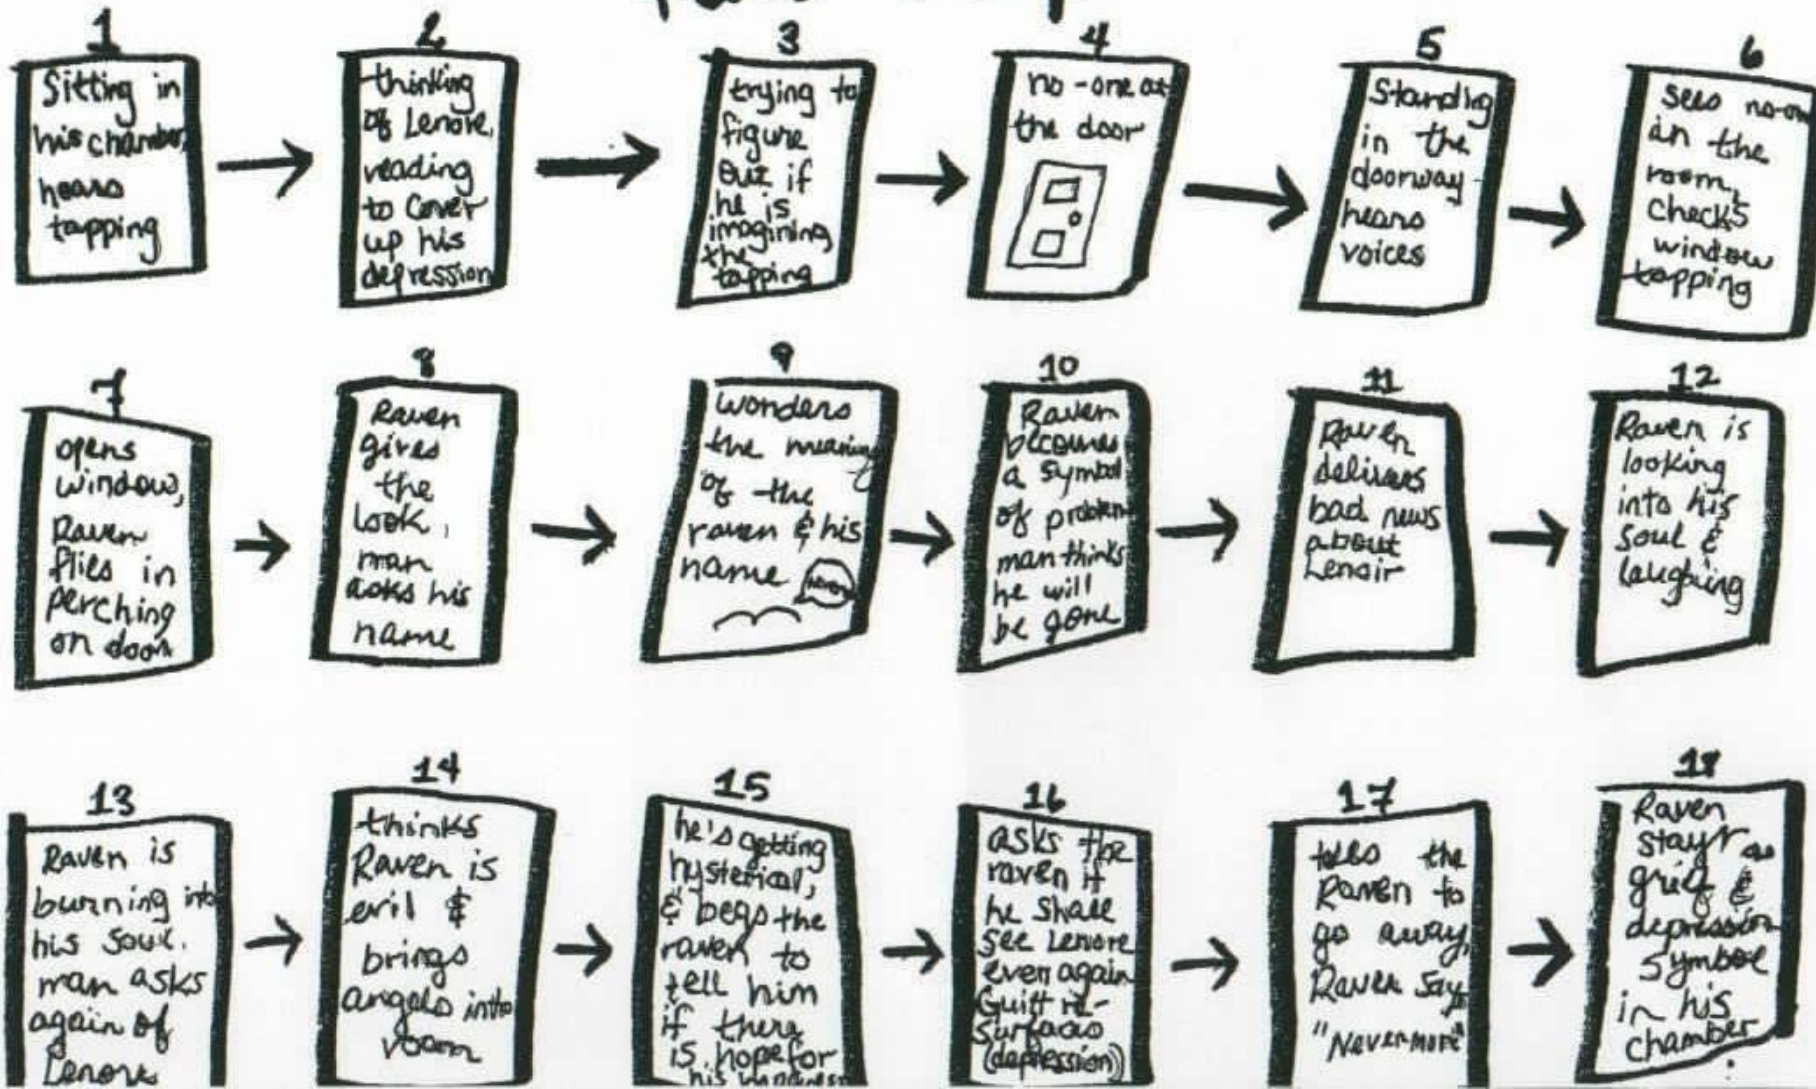 1
Sitting in
his chamber,
hears
tapping
2
thinking
of Lenore,
reading
to cover
up his
depression
3
trying to
figure
out if
he is
imagining
the
tapping
4
no-one at
the door
5
Standing
in the
doorway
hears
voices
6
sees no-one
in the
room,
checks
window
tapping
7
opens
window,
Raven
flies in
perching
on door
8
Raven
gives
the
look,
man
asks his
name
9
wonders
the meaning
of the
raven & his
name
10
Raven
becomes
a symbol
of problem
man thinks
he will
be gone
11
Raven
delivers
bad news
about
Lenoir
12
Raven is
looking
into his
soul &
laughing
13
Raven is
burning into
his soul.
man asks
again of
Lenore
14
thinks
Raven is
evil &
brings
angels into
room
15
he's getting
hysterical,
& begs the
raven to
tell him
if there
is hope for
his
16
asks the
raven if
he shall
see Lenore
ever again
Guilt re-
surfaces
(depression)
17
tells the
Raven to
go away,
Raven says
"Nevermore"
18
Raven
stays as
grief &
depression
symbol
in his
chamber